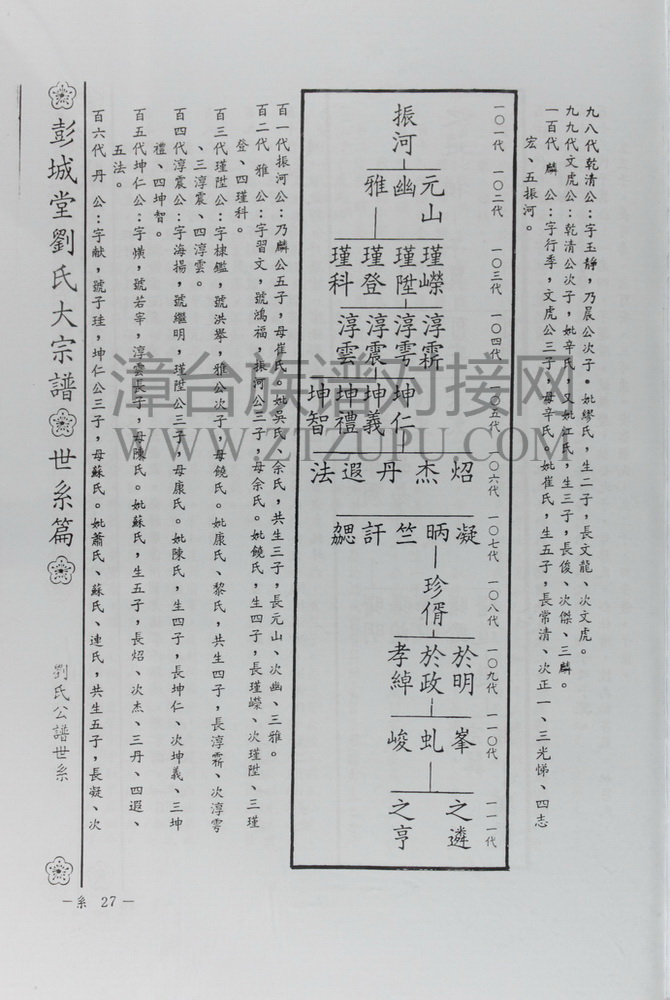 九八代乾清公：字玉靜，乃晨公次子。妣繆氏，生二子，長文龍、次文虎。
九九代文虎公：乾清公次子，妣辛氏，又妣江氏，生三子，長俊、次傑、三麟。
一百代 麟 公：字行季，文虎公三子，母辛氏。妣崔氏，生五子，長常清、次正一、三光悌、四志
宏、五振河。
一〇一代 一〇二代 一〇三代 一〇四代 一〇五代 一〇六代 一〇七代 一〇八代 一〇九代 一一〇代 一一一代
振河
元山 幽 雅
瑾嶸 瑾陞 瑾登 瑾科
淳霦 淳雩 淳震 淳雲
坤仁 坤義 坤禮 坤智
炤 杰 丹 遐 法
凝 昞 竺 訐 勰
珍 偦
於明 於政 孝綽
峯 虬 峻
之遴 之亨
百一代振河公：乃麟公五子，母崔氏。妣吳氏、余氏，共生三子，長元山、次幽、三雅。
百二代 雅 公：字習文，號鴻福，振河公三子，母余氏。妣饒氏，生四子，長瑾嶸、次瑾陞、三瑾
登、四瑾科。
百三代瑾陞公：字棣鑑，號洪舉，雅公次子，母饒氏。妣康氏、黎氏，共生四子，長淳霦、次淳雩
、三淳震、四淳雲。
百四代淳震公：字海揚，號繼明，瑾陞公三子，母康氏。妣陳氏，生四子，長坤仁、次坤義、三坤
禮、四坤智。
百五代坤仁公：字爌，號若宰，淳雲長子，母陳氏。妣蘇氏，生五子，長炤、次杰、三丹、四遐、
五法。
百六代 丹 公：字献，號子珪，坤仁公三子，母蘇氏。妣蕭氏、蘇氏、連氏，共生五子，長凝、次
彭城堂劉氏大宗譜 世系篇
劉氏公譜世系
—系 27—
漳台族谱对接网
WWW.ZTZUPU.COM